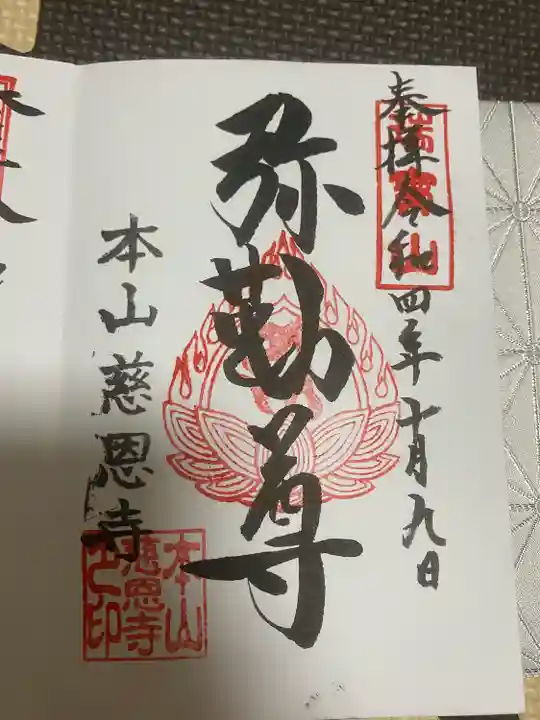 奉拝 令和四年十月九日
瑞宝山
弥勒尊
本山慈恩寺
本山
慈恩寺
之印